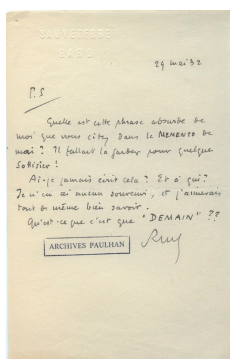 SAUVETERRE
GARD
29 mai 32
P.S
Quelle est cette phrase absurde de
moi que vous citez dans le MEMENTO de
mai ? Il fallait la garder pour quelque
Sottisier !
Ai-je jamais écrit cela ? Et à qui ?
Je n'en ai aucun souvenir, et j'aimerais
tout de même bien savoir.
Qu'est-ce que c'est que "DEMAIN" ??
ARCHIVES PAULHAN